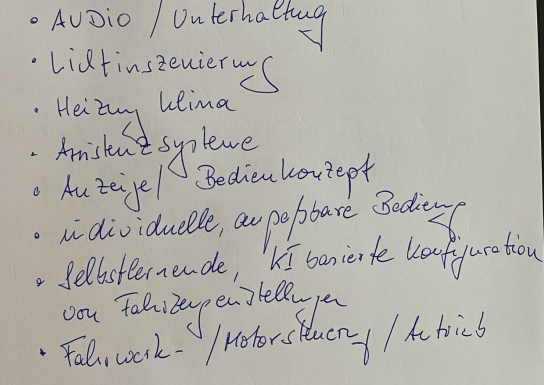 • AUDIO / Unterhaltung
• Lichtinszenierung
• Heizung Klima
• Assistenzsysteme
• Anzeige/ Bedienkonzept
• individuelle, anpaßbare Bedienung
• Selbstlernende, KI basierte Konfiguration
von Fahrzeugeinstellungen
• Fahrwerk- /Motorsteuerung / Antrieb